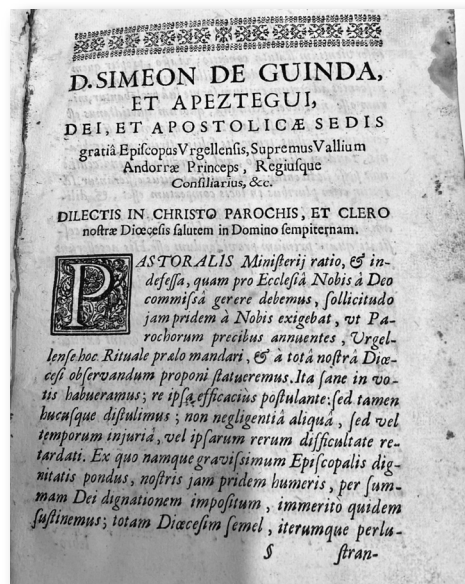 D. SIMEON DE GUINDA,
ET APEZTEGUI,
DEI, ET APOSTOLICÆ SEDIS
gratiâ Episcopus Vrgellensis, Supremus Vallium
Andorræ Princeps, Regiusque
Consiliarius, &c.
DILECTIS IN CHRISTO PAROCHIS, ET CLERO
nostræ Diœcesis salutem in Domino sempiternam.
PASTORALIS Miniſterij ratio, & in-
defeſſa, quam pro Eccleſiâ Nobis à Deo
commiſſâ gerere debemus, ſollicitudo
jam pridem à Nobis exigebat, vt Pa-
rochorum precibus annuentes, Vrgel-
lenſe hoc Rituale prælo mandari, & à totâ noſtrâ Diœ-
ceſi obſervandum proponi ſtatueremus. Ita ſane in vo-
tis habueramus; re ipſa efficaciùs poſtulante: ſed tamen
hucuſque diſtulimus; non negligentiâ aliquâ, ſed vel
temporum injuriâ, vel ipſarum rerum difficultate re-
tardati. Ex quo namque graviſſimum Epiſcopalis dig-
nitatis pondus, noſtris jam pridem humeris, per ſum-
mam Dei dignationem impoſitum, immerito quidem
ſuſtinemus; totam Diœceſim ſemel, iterumque perlu-
§ ſtran-